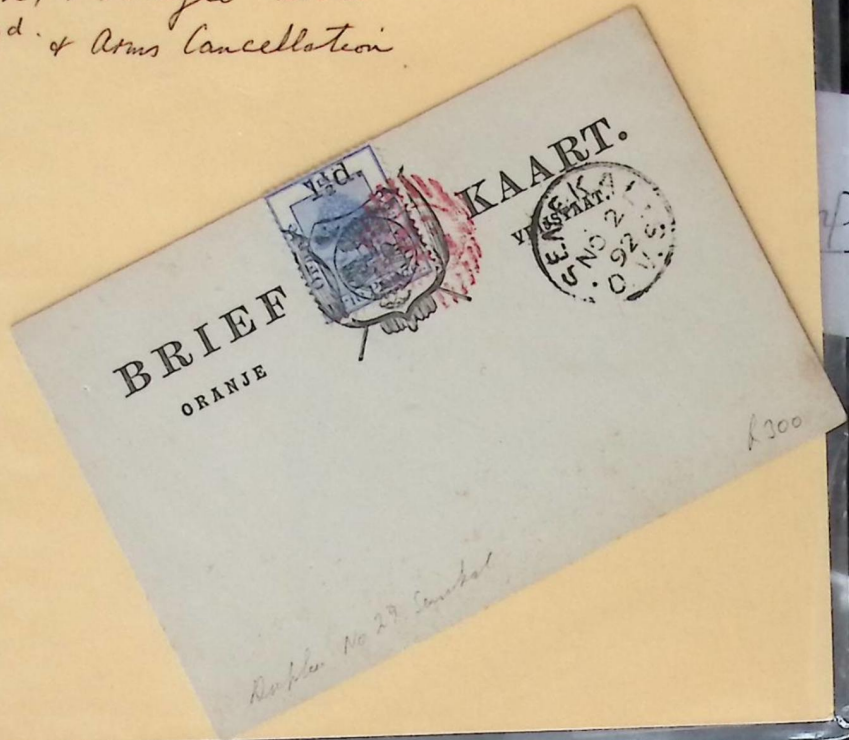 d. & Arms Cancellation
BRIEF KAART.
ORANJE VRYSTAAT.
1½d.
SENEKAL
NO 2
92
O.V.S.
R300
Duplex No 29 Senekal